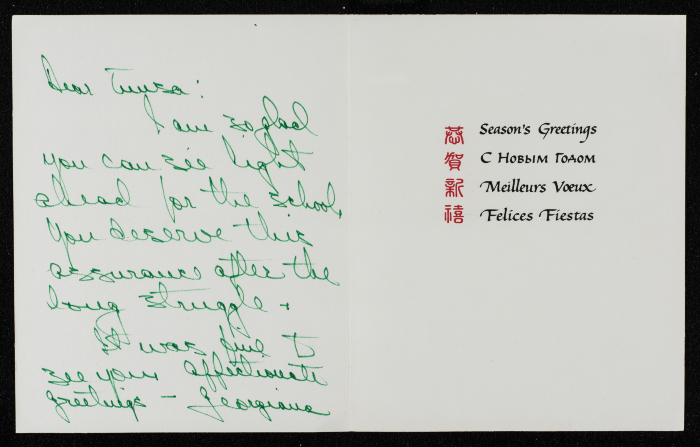 Dear Tinka:
I am so glad
you can see light
ahead for the school,
You deserve this
assurance after the
long struggle.
It was fine to
see your affectionate
greetings – Georgiana
恭賀新禧
Season's Greetings
С Новым Годом
Meilleurs Vœux
Felices Fiestas